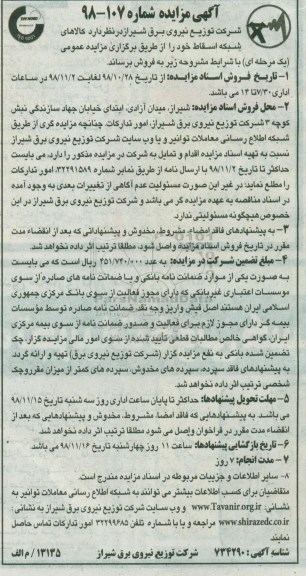 آگهی مزایده شماره ۱۰۷-۹۸
شرکت توزیع نیروی برق شیراز درنظر دارد کالاهای
شبکه اسقاط خود را از طریق برگزاری مزایده عمومی
(یک مرحله ای) با شرایط مشروحه زیر به فروش برساند.
۱- تاریخ فروش اسناد مزایده: از تاریخ ۹۸/۱۰/۲۸ لغایت ۹۸/۱۱/۲ در ساعات
اداری ۷/۳۰ تا ۱۴ می باشد.
۲- محل فروش اسناد مزایده: شیراز، میدان آزادی، ابتدای خیابان جهاد سازندگی نبش
کوچه ۳ شرکت توزیع نیروی برق شیراز، امور تدارکات. چنانچه مزایده گری از طریق
شبکه اطلاع رسانی معاملات توانیر و یا وب سایت شرکت توزیع نیروی برق شیراز
نسبت به تهیه اسناد مزایده اقدام و تمایل به شرکت در مزایده مذکور را دارد، می بایست
حداکثر تا تاریخ ۹۸/۱۱/۲ با ارسال نامه از طریق نمابر شماره ۳۲۲۹۱۵۸۹، امور تدارکات
را مطلع نماید؛ در غیر این صورت مسئولیت عدم آگاهی از تغییرات بعدی به وجود آمده
در اسناد مناقصه به عهده مزایده گر می باشد و شرکت توزیع نیروی برق شیراز در این
خصوص هیچگونه مسئولیتی ندارد.
۳- به پیشنهادهای فاقد امضاء، مشروط، مخدوش و پیشنهاداتی که بعد از انقضاء مدت
مقرر در تاریخ فروش اسناد مزایده واصل شود، مطلقا ترتیب اثر داده نخواهد شد.
۴- مبلغ تضمین شرکت در مزایده: به عدد ۴۵۱/۷۴۰/۰۰۰ ریال است که می بایست
به صورت یکی از موارد ضمانت نامه بانکی و یا ضمانت نامه های صادره از سوی
موسسات اعتباری غیر بانکی که دارای مجوز فعالیت از سوی بانک مرکزی جمهوری
اسلامی ایران هستند، اصل فیش واریز وجه نقد، ضمانت نامه صادره توسط مؤسسات
بیمه گر دارای مجوز لازم برای فعالیت و صدور ضمانت نامه از سوی بیمه مرکزی
ایران، گواهی خالص مطالبات قطعی تأیید شده از سوی امور مالی مزایده گزار، چک
تضمین شده بانکی به نفع مزایده گزار (شرکت توزیع نیروی برق) تهیه و ارائه گردد.
به پیشنهادهای فاقد سپرده، سپرده های مخدوش، سپرده های کمتر از میزان مقرر و چک
شخصی ترتیب اثر داده نخواهد شد.
۵- مهلت تحویل پیشنهادها: حداکثر تا پایان ساعت اداری روز سه شنبه تاریخ ۹۸/۱۱/۱۵
می باشد. به پیشنهادهایی که فاقد امضا، مشروط، مخدوش و پیشنهادهایی که بعد از
انقضاء مدت مقرر در فراخوان واصل می شود مطلقا ترتیب اثر داده نخواهد شد.
۶- تاریخ بازگشایی پیشنهادها: ساعت ۱۱ روز چهارشنبه تاریخ ۹۸/۱۱/۱۶ می باشد.
۷- مدت انجام: ۷ روز
۸- سایر اطلاعات و جزییات مربوطه در اسناد مزایده مندرج است.
متقاضیان برای کسب اطلاعات بیشتر می توانند به شبکه اطلاع رسانی معاملات توانیر به
نشانی: www.Tavanir.org.ir و وب سایت شرکت توزیع نیروی برق شیراز به نشانی:
www.shirazedc.co.ir مراجعه و یا با شماره تلفن ۳۲۲۹۹۶۸۵ امور تدارکات تماس حاصل
نمایند.
شناسه آگهی: ۷۳۴۲۹۰ شرکت توزیع نیروی برق شیراز ۱۳۱۳۵/م الف